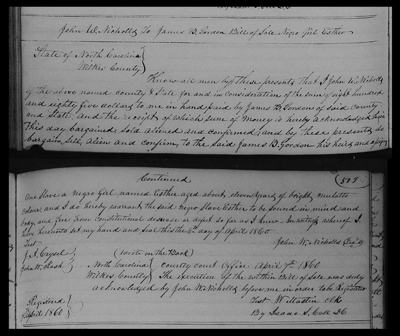 John W. Nicholls To James B. Gordon Bill of Sale Negro Girl Esther
State of North Carolina
Wilkes County
Know all men by these presents that I John W Nicholls
of the above named county & State for and in consideration of the sum of eight hundred
and eighty five dollars to me in hand paid by James B. Gordon of said county
and State. and the receipt of which sum of money is hereby acknowledged have
this day bargained sold aliened and confirmed and by these presents do
bargain, sell, alien and confirm, to the said James B. Gordon his heirs and assigns
Continued
525
One Slave a negro girl named Esther aged about eleven years of bright mulatto
colour and I do hereby warrant the said negro slave Esther to be sound in mind and
body and free from constitutional disease or defect so far as I know. In testimony whereof I
have hereunto set my hand and seal this the 6th day of April 1860.
Test
John W. Nicholls (Seal)
(Wrote on the Back)
North Carolina county court Office April 7th 1860
Wilkes County The execution of the within Bill of Sale was duly
acknowledged by John W Nicholls before me in order to be Registered
Registered
April 1860
Test clk
By Isaac S. Call DC